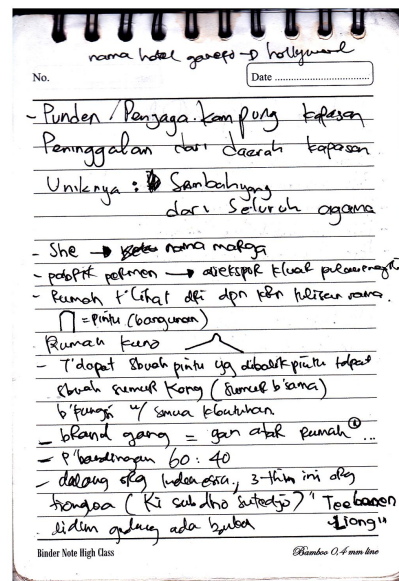 nama hotel ganefo → hollywood
No.
Date
- Punden / Penjaga kampung kapasan
Peninggalan dari daerah kapasan
Uniknya : Sembahyang
dari Seluruh agama
- She → nama marga
- pabrik permen → diekspor kluar
- Rumah t'lihat dri dpn kbn tulisan sama.
= pintu (bangunan)
Rumah kuno
- T'dapat sbuah pintu yg dibalik pintu t'dpat
sbuah sumur kong (sumur b'sama)
b'fungsi u/ smua kbutuhan.
- bRand gang = gan atak Rumah² ...
- P'bandingan 60 : 40
- dalang org Indonesia, 3-thn ini org
tiongoa (Ki subdho sutedjo) "Teebonen
Liong"
didlm gudang ada
Binder Note High Class
Bamboo 0,4 mm line